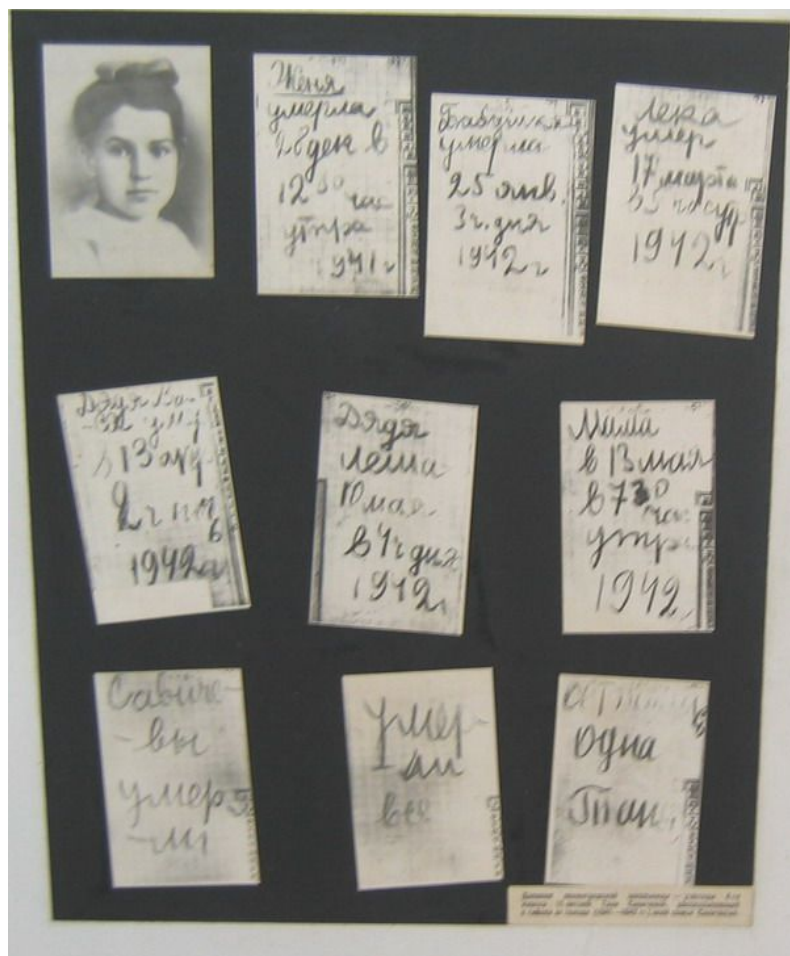 Женя
умерла
28 дек в
12 30 час
утра
1941 г
Бабушка
умерла
25 янв.
3 ч. дня
1942 г
Лека
умер
17 марта
в 5 час утр
1942 г
Дядя Ва-
-ся умер
в 13 апр
2 ч ноч
1942 г
Дядя
Леша
10 мая
в 4 ч дня
1942 г
Мама
в 13 мая
в 7 30
час
утра
1942
Савиче-
-вы
умер
-ли
умер-
-ли
все
одна
Таня